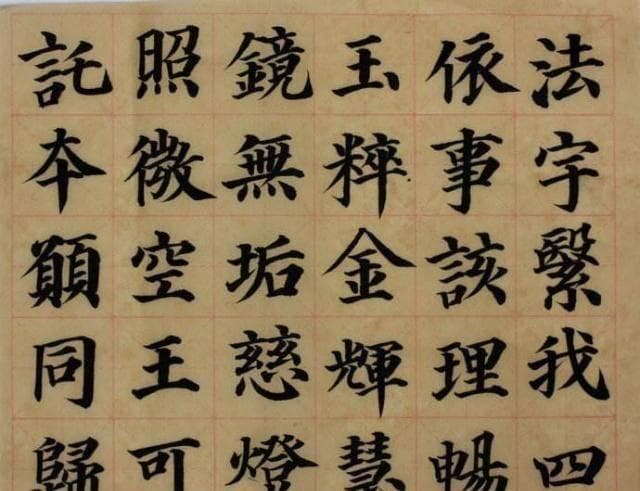 法宇繫我四
依事該理暢
玉粹金輝慧
鏡無垢慈燈
照微空王可
託本願同歸